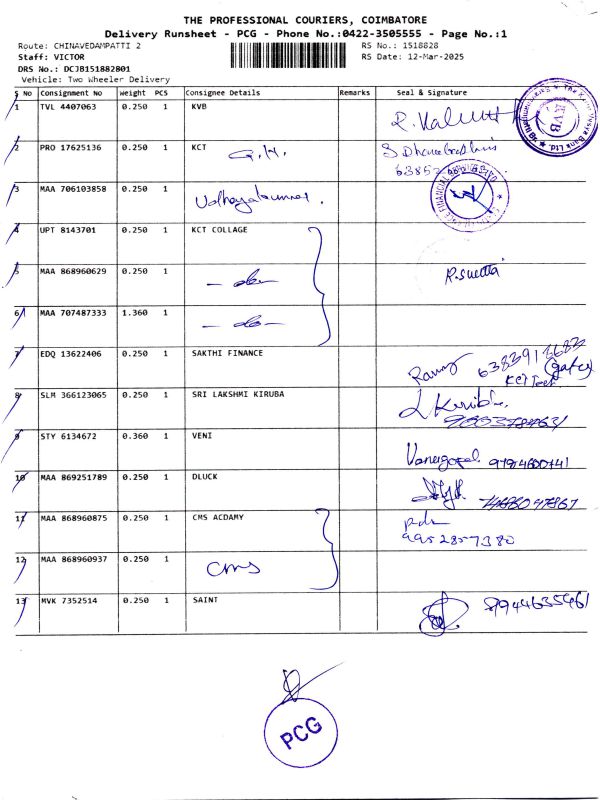 THE PROFESSIONAL COURIERS, COIMBATORE
Delivery Runsheet - PCG - Phone No.:0422-3505555 - Page No.:1
Route: CHINAVEDAMPATTI 2 RS No.: 1518828
Staff: VICTOR RS Date: 12-Mar-2025
DRS No.: DCJB151882801
Vehicle: Two Wheeler Delivery
S No Consignment No Weight PCS Consignee Details Remarks Seal & Signature
1 TVL 4407063 0.250 1 KVB
KVB
2 PRO 17625136 0.250 1 KCT
3 MAA 706103858 0.250 1
Udhayakumar.
4 UPT 8143701 0.250 1 KCT COLLAGE
5 MAA 868960629 0.250 1
- do - R.Suetta
6 MAA 707487333 1.360 1
- do -
7 EDQ 13622406 0.250 1 SAKTHI FINANCE
(gate)
KCT Tech
8 SLM 366123065 0.250 1 SRI LAKSHMI KIRUBA
9 STY 6134672 0.360 1 VENI
Venugopal
10 MAA 869251789 0.250 1 DLUCK
11 MAA 868960875 0.250 1 CMS ACDAMY
9952857380
12 MAA 868960937 0.250 1
CMS
13 MVK 7352514 0.250 1 SAINT
9944635461
PCG